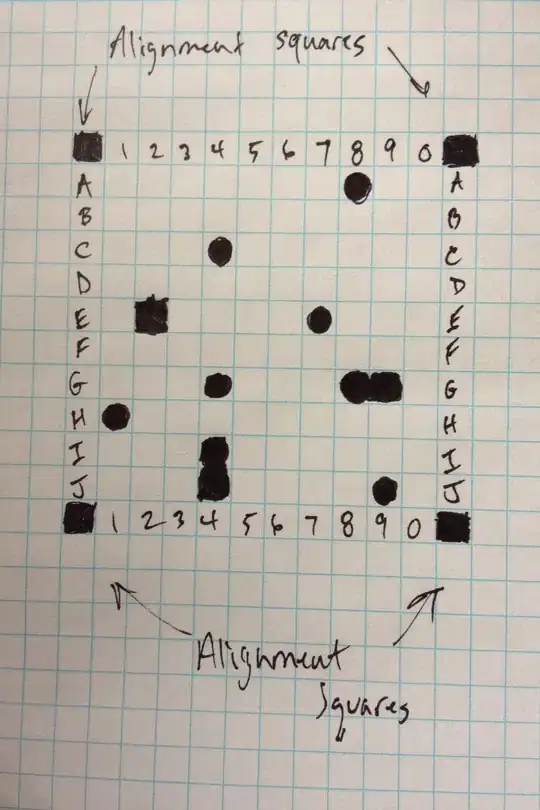 Alignment squares
1 2 3 4 5 6 7 8 9 0
A A
B B
C C
D D
E E
F F
G G
H H
I I
J J
1 2 3 4 5 6 7 8 9 0
Alignment
squares